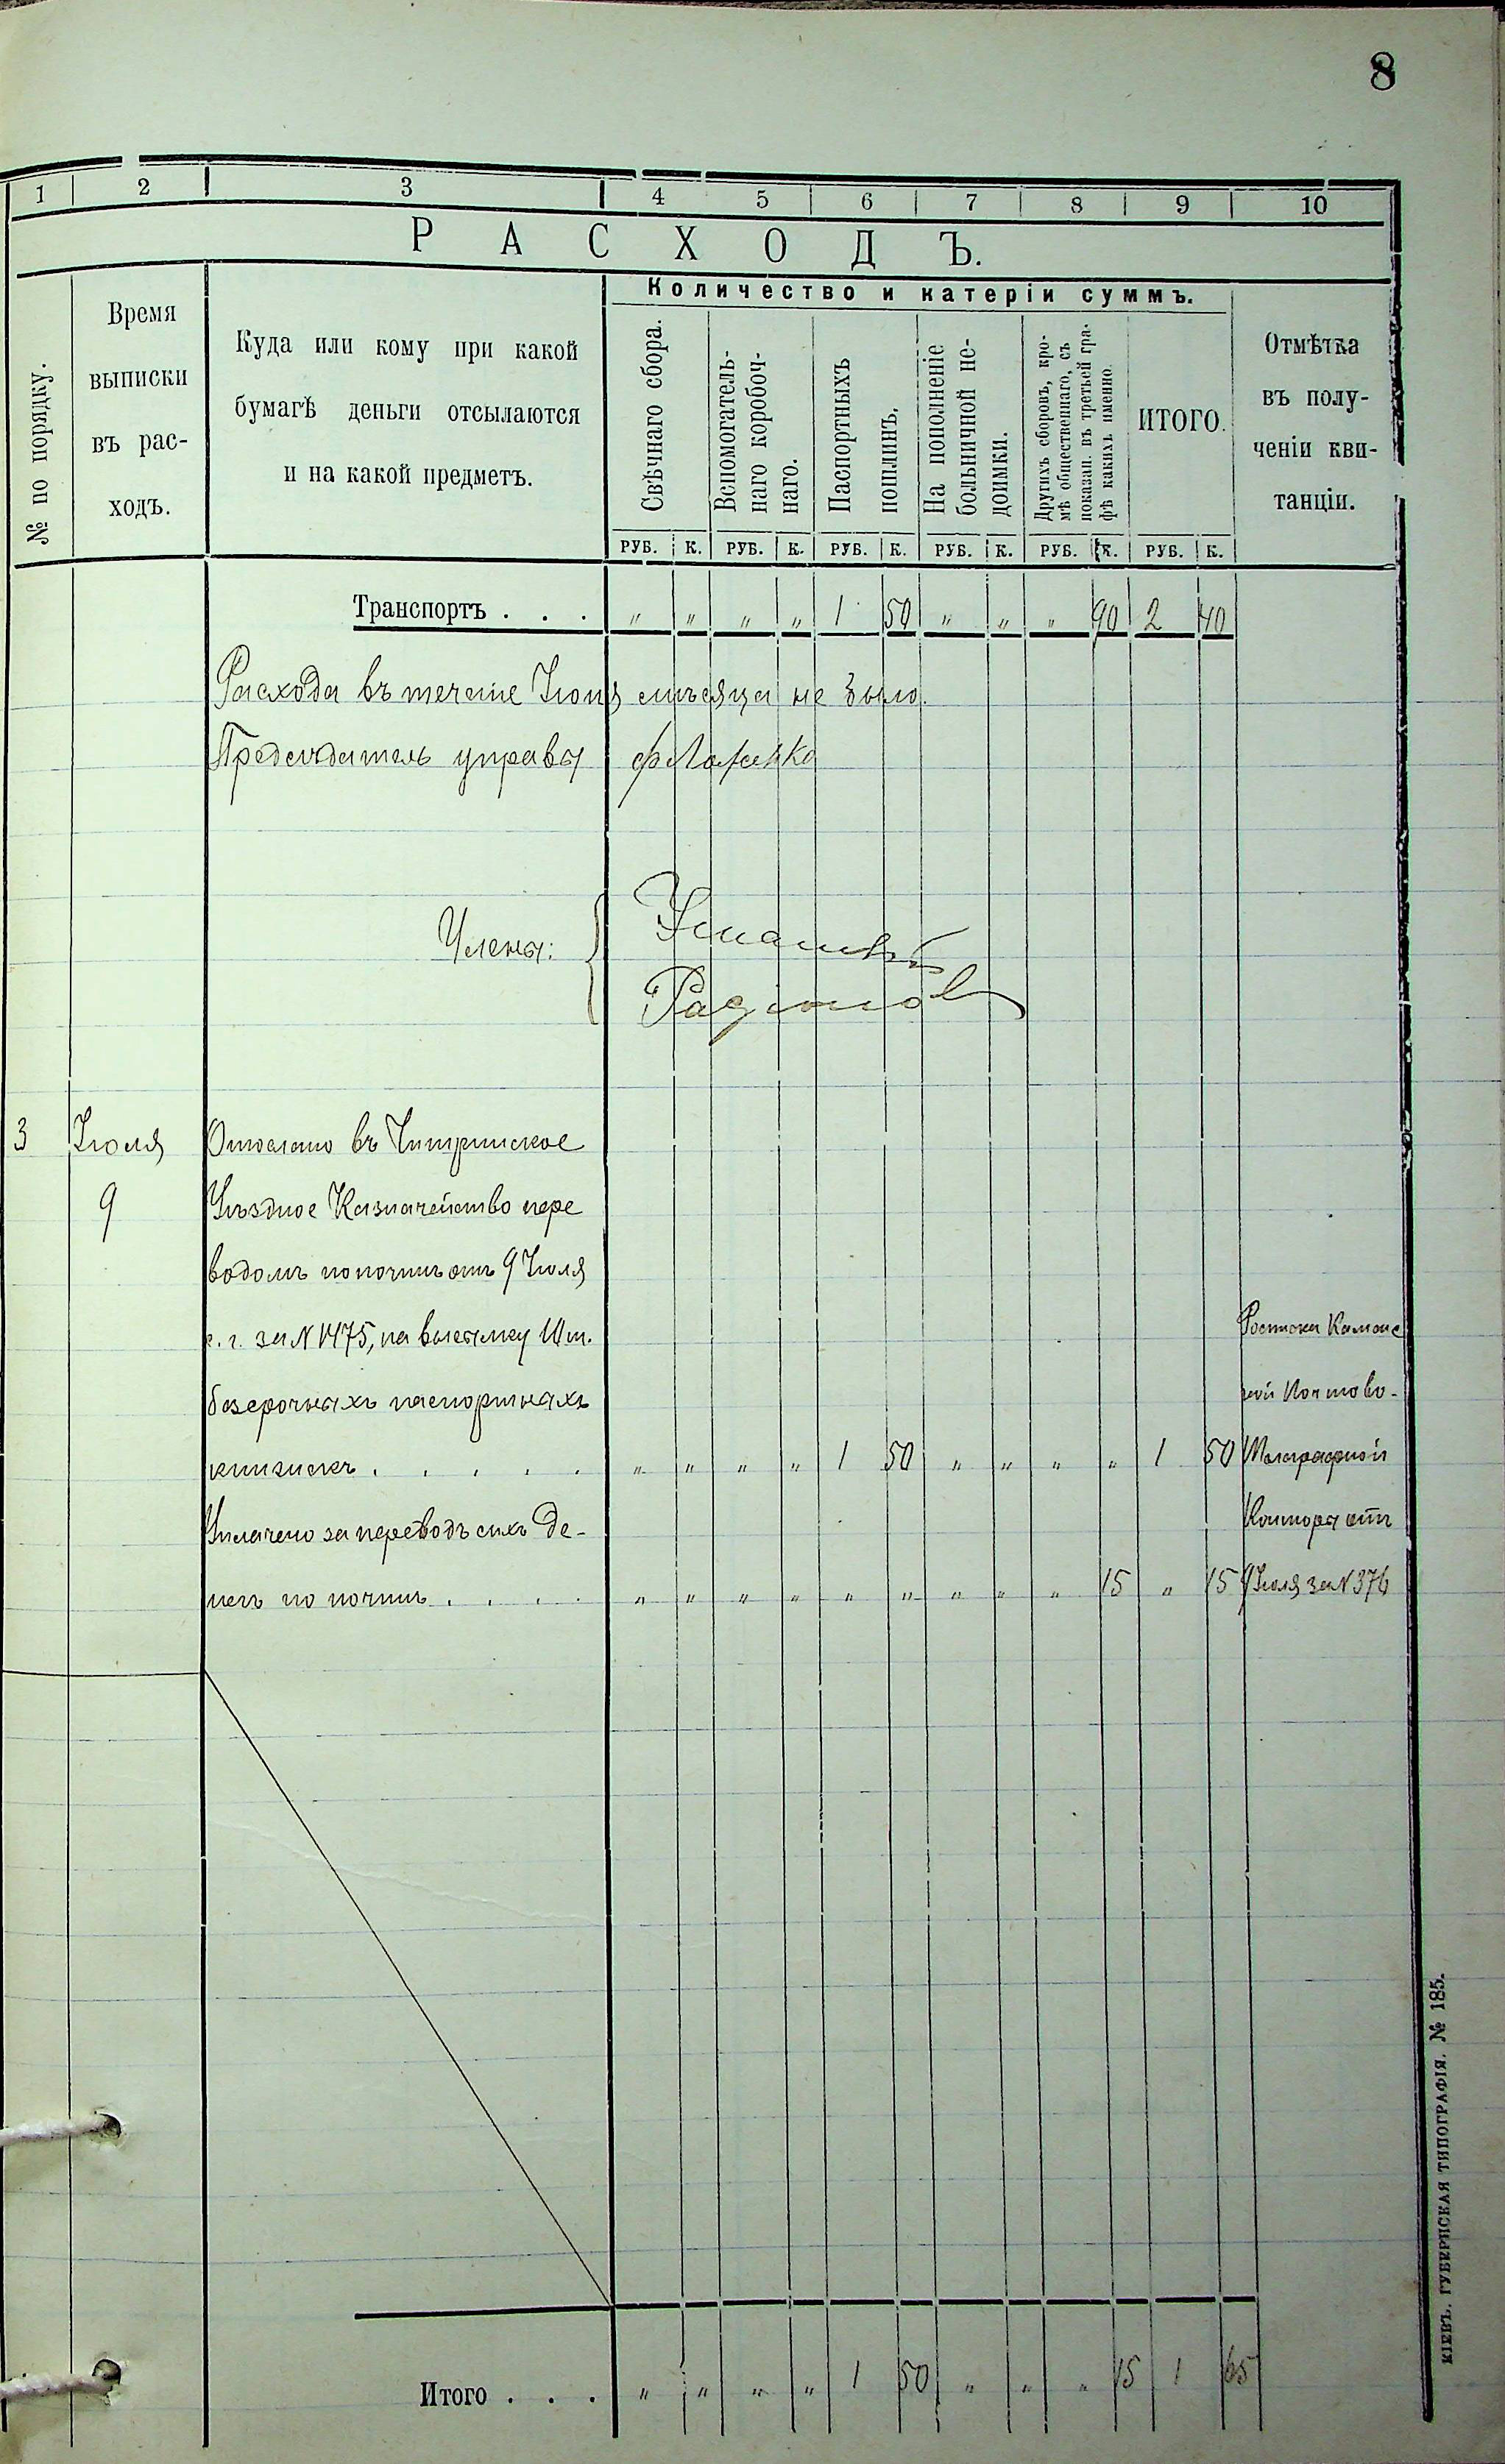 8
1 2 3 4 5 6 7 8 9 10
РАСХОДЪ.
№ по порядку.
Время
выписки
въ рас-
ходъ.
Куда или кому при какой
бумагѣ деньги отсылаются
и на какой предметъ.
Количество и катеріи суммъ.
Свѣчнаго сбора.
Вспомогатель-
наго коробоч-
наго.
Паспортныхъ
пошлинъ.
На пополненіе
больничной не-
доимки.
Другихъ сборовъ, кро-
мѣ общественнаго, съ
показан. въ третьей гра-
фѣ какихъ именно.
ИТОГО.
Отмѣтка
въ полу-
ченіи кви-
танціи.
РУБ. К. РУБ. К. РУБ. К. РУБ. К. РУБ. К. РУБ. К.
Транспортъ . . . " " " " 1 50 " " " 90 2 40
Расхода въ течение Іюня мѣсяца не было.
Предсѣдатель управы
Члены:
Радіонов
3 Іюля Отослано въ Чигринское
9 Уѣздное Казначейство пере
водомъ по почтѣ отъ 9 Іюля
с. г. за N 1475, на высылку 10 шт.
безсрочныхъ паспортныхъ
книжекъ . . . . . " " " " 1 50 " " " " 1 50
Уплачено за переводъ сихъ де-
негъ по почтѣ . . . . " " " " " " " " " 15 " 15
Росписка Каменс
кой Почтово-
Телеграфной
Конторы отъ
9 Іюля за N 376
Итого . . . " " " " 1 50 " " " 15 1 65
КІЕВЪ. ГУБЕРНСКАЯ ТИПОГРАФІЯ. № 185.